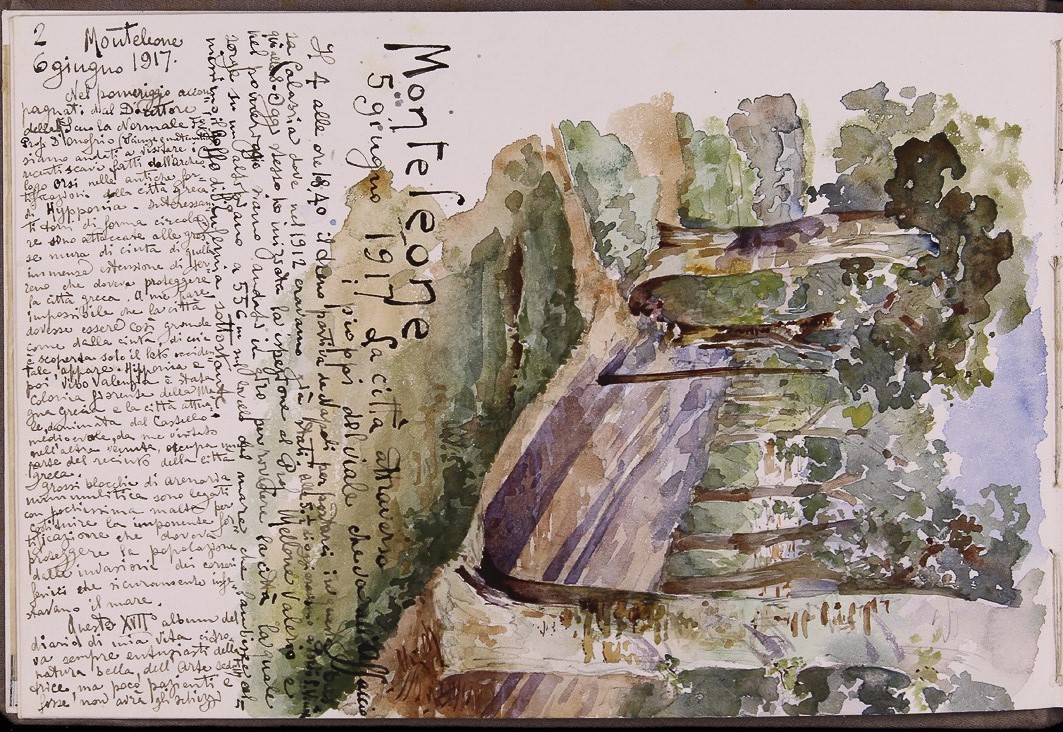 2 Monteleone
6 giugno 1917.
Nel pomeriggio accom
pagnati dal Direttore
della Scuola Normale
Prof. D'Onofrio
siamo andati a visitare i
recenti scavi fatti dall'Archeo
logo Orsi nelle antiche for
tificazioni della città greca
di Hypponia. Interessan
ti torri di forma circola
re sono attaccate alle gros
se mura di cinta di quella
immensa estensione di ter
reno che doveva proteggere
la città greca. A me pare
impossibile che la città
dovesse essere così grande
come dalla cinta, di cui
è scoperto solo il lato occiden
tale, appare. Hipponion e
poi Vibo Valentia è stata
colonia fiorente della Ma
gna Grecia e la città attua
le, dominata dal Castello
medioevale, da me visitato
nell'altra venuta, occupa una
parte del recinto della città
greca.
Grossi blocchi di arenaria
nummulitica sono legati
con pochissima malta per
costituire la imponente for
tificazione che doveva
proteggere la popolazione
dalle invasioni dei corsari
feriti che sicuramente infe
stavano il mare.
Questo XVII album del
diario di mia vita
va sempre entusiasta della
natura bella, dell'Arte
ma poco pazienti e
forse non avrà gli schizzi
Monteleone
5 giugno 1917 La città attraverso
i pioppi del viale che va
Il 4 alle ore 18,40 siamo partiti da Napoli per portarci in
sa Calabria dove nel 1912 eravamo già stati
Oggi stesso ho iniziato la ispezione al Prof. Mellone Valerio e
nel pomeriggio siamo andati in giro per visitare la città la quale
sorge su un altopiano a 556 m sul livello del mare che
golfo di S. Eufemia sottostante.